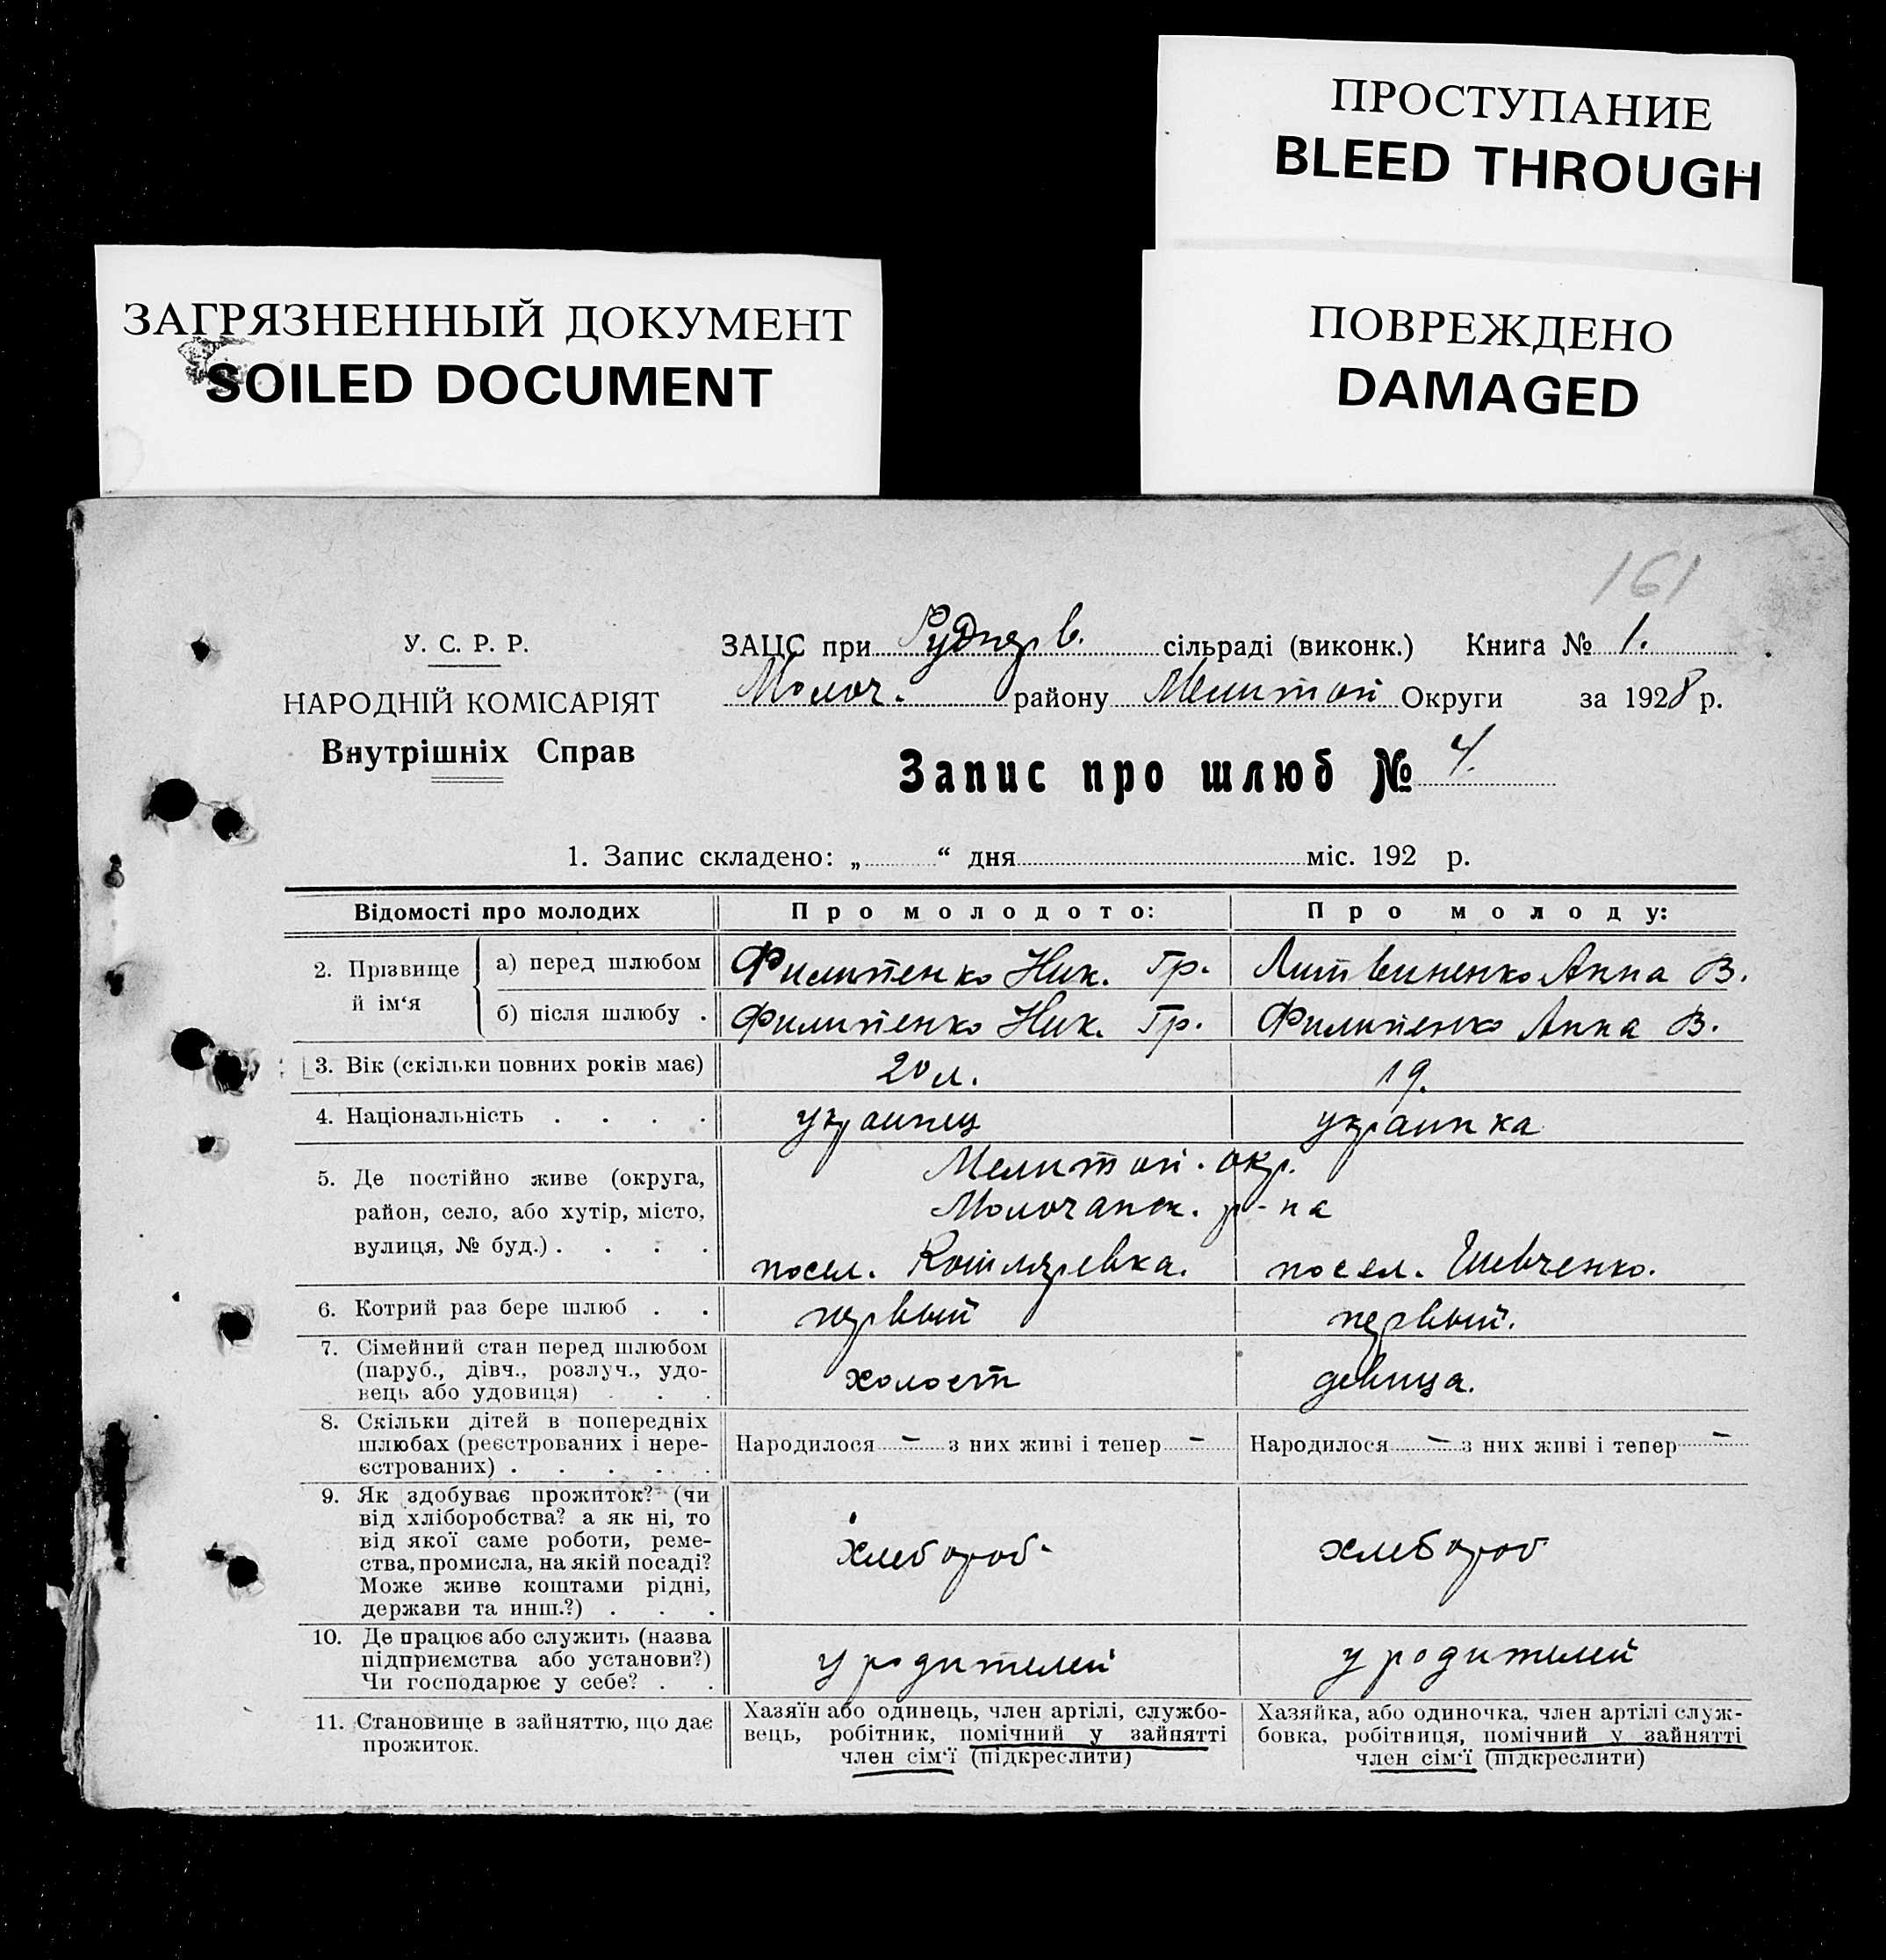 ПРОСТУПАНИЕ
BLEED THROUGH
ЗАГРЯЗНЕННЫЙ ДОКУМЕНТ
SOILED DOCUMENT
ПОВРЕЖДЕНО
DAMAGED
161
У. С. Р. Р.
НАРОДНІЙ КОМІСАРІЯТ
Внутрішніх Справ
ЗАЦС при Руднерв. сільраді (виконк.) Книга № 1.
Молоч. району Мелитоп Округи за 1928 р.
Запис про шлюб № 4.
1. Запис складено: „ “ дня міс. 192 р.
Відомості про молодих
Про молодого:
Про молоду:
2. Прізвище й ім‘я
а) перед шлюбом
Филипенко Ник. Гр.
Литвиненко Анна В.
б) після шлюбу .
Филипенко Ник. Гр.
Филипенко Анна В.
3. Вік (скільки повних років має)
20 л.
19.
4. Національність . . . .
украинец
украинка
5. Де постійно живе (округа,
район, село, або хутір, місто,
вулиця, № буд.) . . . .
Мелитоп. окр.
Молочанск. р-на
посел. Котляревка.
посел. Шевченко.
6. Котрий раз бере шлюб . .
первый
первый.
7. Сімейний стан перед шлюбом
(паруб., дівч., розлуч., удо-
вець або удовиця) . . .
холост
девица.
8. Скільки дітей в попередніх
шлюбах (реєстрованих і нере-
єстрованих) . . . . .
Народилося – з них живі і тепер –
Народилося – з них живі і тепер –
9. Як здобуває прожиток? (чи
від хліборобства? а як ні, то
від якої саме роботи, реме-
ства, промисла, на якій посаді?
Може живе коштами рідні,
держави та инш.?) . . .
хлебороб
хлебороб
10. Де працює або служить (назва
підприємства або установи?)
Чи господарює у себе? . .
у родителей
у родителей
11. Становище в зайняттю, що дає
прожиток.
Хазяїн або одинець, член артілі, службо-
вець, робітник, помічний у зайнятті
член сім‘ї (підкреслити)
Хазяйка, або одиночка, член артілі служ-
бовка, робітниця, помічний у зайнятті
член сім‘ї (підкреслити)